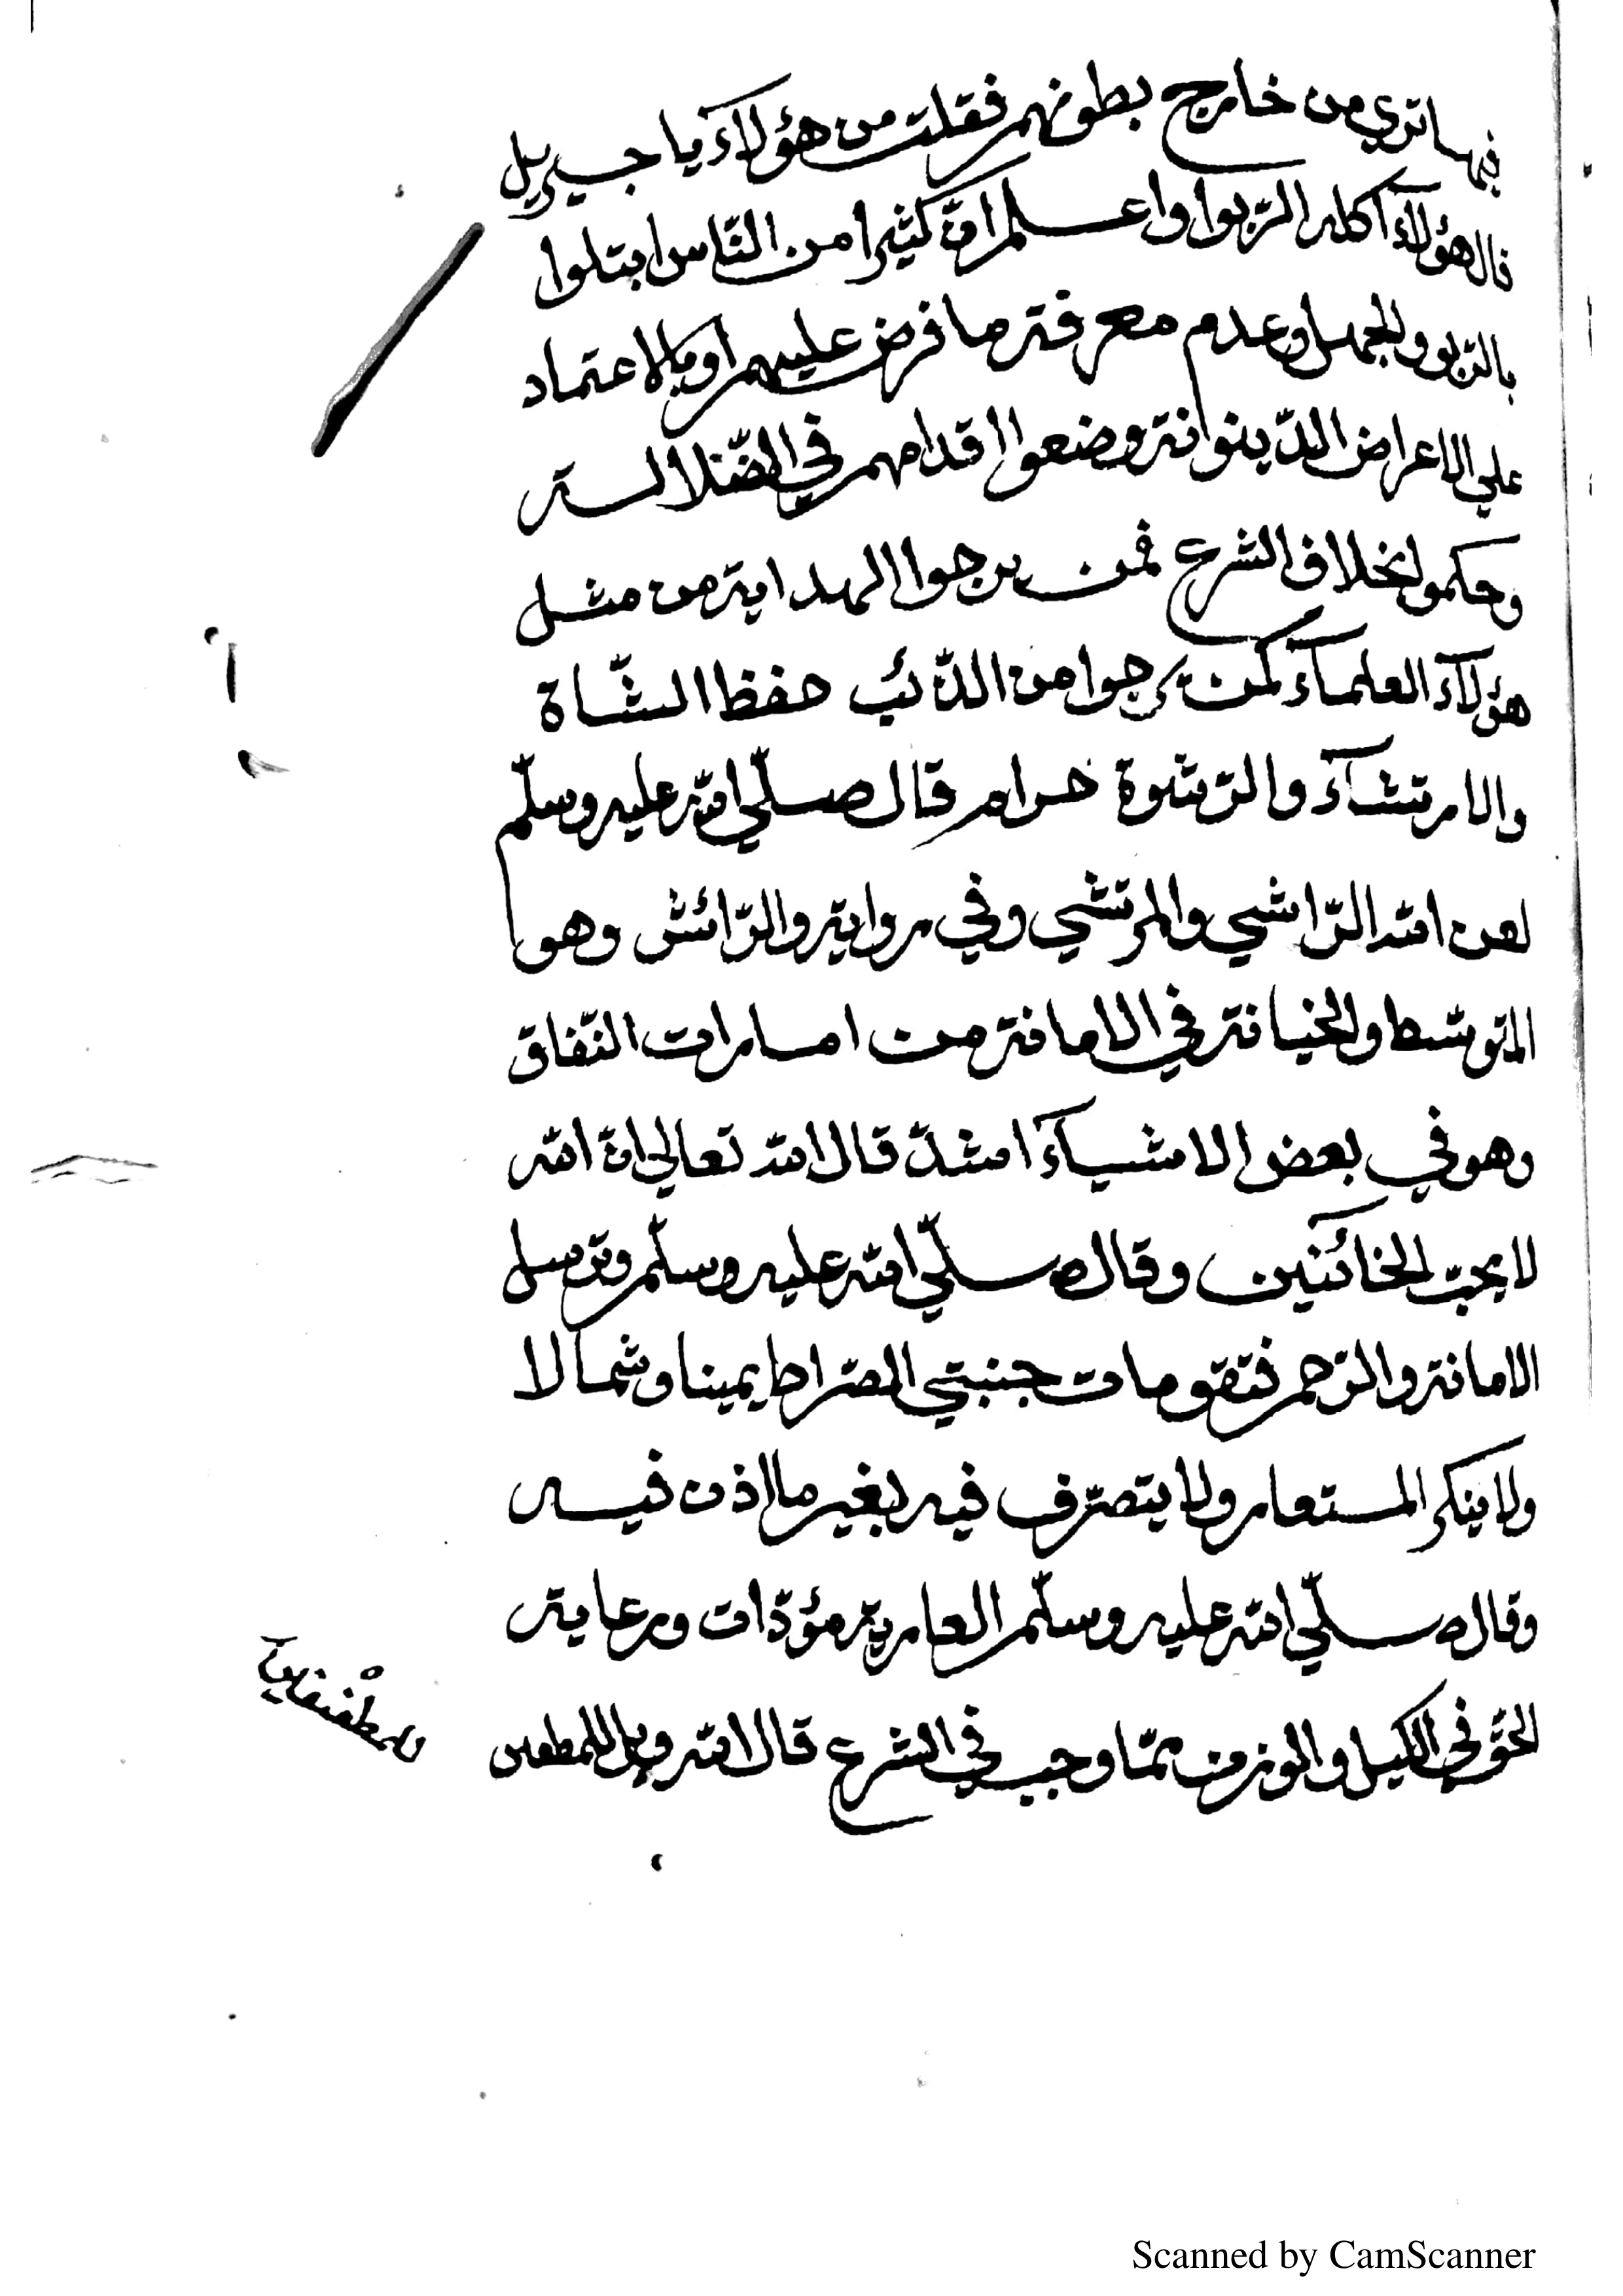 فيها تري من خارج بطونهم فقلت من هؤلاء يا جبريل
قال هؤلاء اكلة الرّبوا واعلم انّ كثيرا من النّاس ابتلوا
بالرّبو والجهل وعدم معرفة ما فرض عليهم او بالاعتماد
علي الاعراض الدّنيوانة وضعوا اقدامهم في الضّلالة
وحكموا بخلاف الشرع فمن يرجوا الهداية من مثل
هؤلاء العلماء كمن يرجوا من الذّئب حفظ الشّاة
والارتشاء والرّشوة حرام قال صلّي الله عليه وسلّم
لعن الله الرّاشي والمرتشي وفي رواية والرّائش وهو
المتوسّط والخيانة في الامانة من امارات النّفاق
وهو في بعض الاشياء اشدّ قال الله تعالي انّ الله
لا يحبّ الخائنين وقال صلّي الله عليه وسلّم وترسل
الامانة والرّحم فتقومان جنبتي الصّراط يمينا وشمالا
ولا ينكر المستعار ولا يتصرّف فيه بغير ما اذن فيه
وقال صلّي الله عليه وسلّم العارية مؤدّاة ورعاية
الحقّ في الكيل والوزن ممّا وجب في الشرع قال الله ويل للمطففين
Scanned by CamScanner